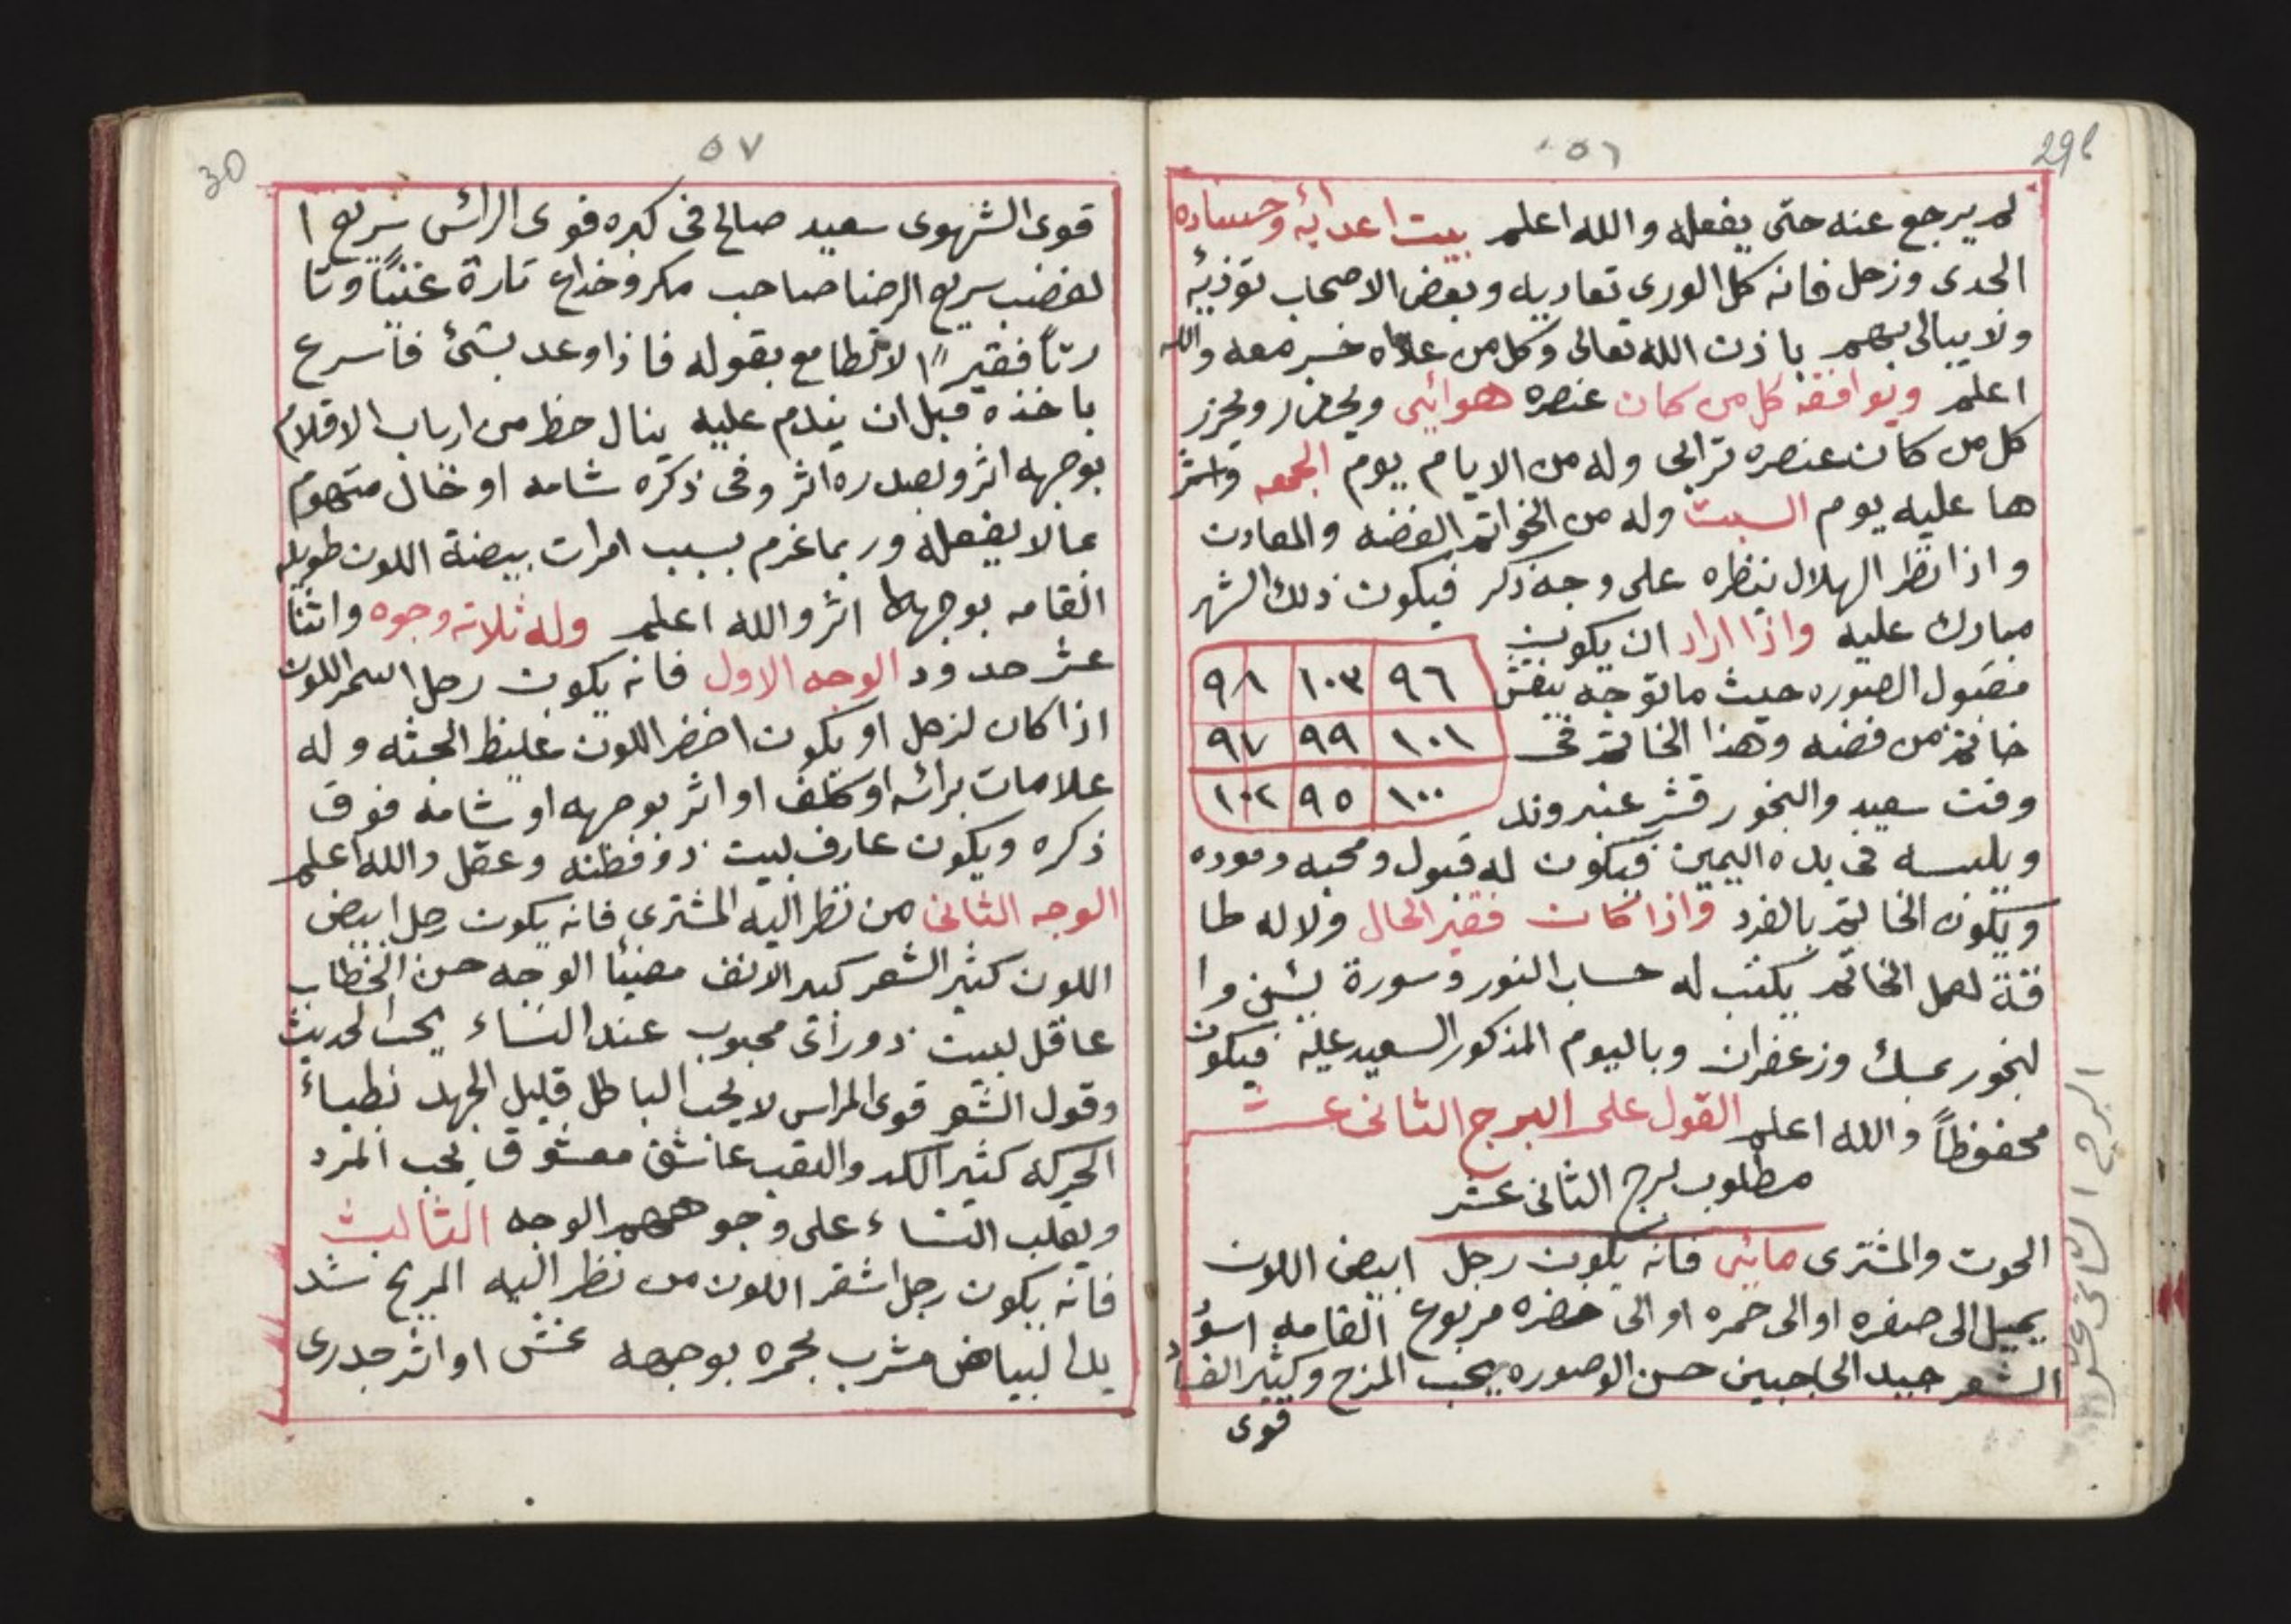 ٥٦
29b
لم يرجع عنه حتى يفعله والله اعلم بيت اعدايه وحساده
الجدى وزحل فانه كل الورى تعاديه وبعض الاصحاب توذيه
ولا يبالى بهم باذن الله تعالى وكل من عاداه خسر معه والله
اعلم ويوافقه كل من كان عنصره هوائى ويحضر ويحرز
كل من كان عنصره ترابى وله من الايام يوم الجمعه واشر
ها عليه يوم السبت وله من الخواتم الفضه والمعادن
واذا نظر الهلال ينظره على وجه ذكر فيكون ذلك الشهر
مبارك عليه واذا اراد ان يكون
مقبول الصوره حيث ما توجه ينقش
خاتم من فضه وهذا الخاتم فى
وقت سعيد والبخور قشر عنبر وند
٩٨ ١٠٣ ٩٦
٩٧ ٩٩ ١٠١
١٠٢ ٩٥ ١٠٠
ويلبسه فى يده اليمين فيكون له قبول ومحبه وموده
ويكون الخاتم بالفرد واذا كان فقير الحال ولا له طا
قة لعمل الخاتم يكتب له حساب النور وسورة يس وا
لبخور بمسك وزعفران وباليوم المذكور السعيد عليه فيكون
محفوظاً والله اعلم القول على البرج الثانى عشر
مطلوب برج الثانى عشر
الحوت والمشترى مائى فانه يكون رجل ابيض اللون
يميل الى صفره او الى حمره او الى خضره مربوع القامه اسود
الشعر جيد الحاجبين حسن الوصوره يحب المزح وكثير الفساد
قوى
البرج الثانى عشر
٥٧
30
قوى الشهوى سعيد صالح فى كبره قوى الرائس سريع ا
لغضب سريع الرضا صاحب مكر وخداع تارة غنيًا وتا
رتاً فقيراً لا تطامع بقوله فاذا وعد بشئ فاسرع
باخذه قبل ان يندم عليه ينال حظ من ارباب الاقلام
بوجهه اثر وبصدره اثر وفى ذكره شامه او خال متهوم
بما لا يفعله وربما غرم بسبب امرات بيضة اللون طويله
القامه بوجهها اثر والله اعلم وله ثلاثه وجوه واثنا
عشر حدود الوجه الاول فانه يكون رجل اسمر اللون
اذا كان لزحل او يكون اخضر اللون غليظ الجثه وله
علامات برائسه او كلف او اثر بوجهه او شامه فوق
ذكره ويكون عارف لبيت ذو فطنه وعقل والله اعلم
الوجه الثانى من نظر اليه المشترى فانه يكون رجل ابيض
اللون كثير الشعر كبير الانف مضيئا الوجه حسن الخطاب
عاقل لبيت ذو رائى محبوب عند النساء يحب الحديث
وقول الشعر قوى المراس لا يحب الباطل قليل الجهد بطياء
الحركه كثير الكد والتعب عاشق معشوقا يحب المرد
ويغلب النساء على وجوههم الوجه الثالث
فانه يكون رجل اشقر اللون من نظر اليه المريخ شد
يد البياض مشرب بحمره بوجهه نمش او اثر جدرى